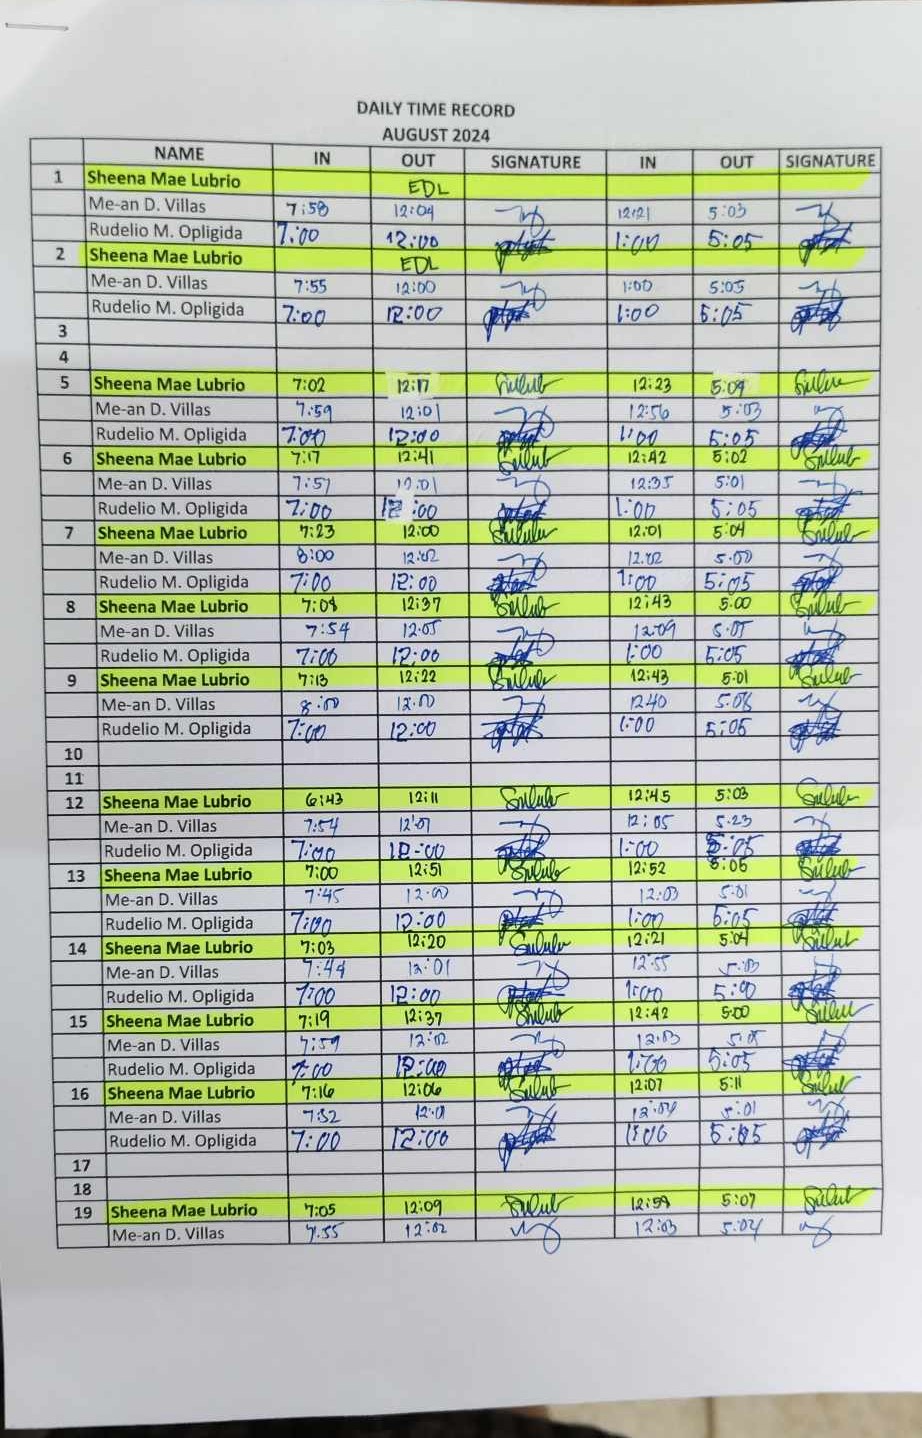 DAILY TIME RECORD
AUGUST 2024
NAME IN OUT SIGNATURE IN OUT SIGNATURE
1 Sheena Mae Lubrio EDL
Me-an D. Villas 7:58 12:04 12:21 5:03
Rudelio M. Opligida 7:00 12:00 1:00 5:05
2 Sheena Mae Lubrio EDL
Me-an D. Villas 7:55 12:00 1:00 5:05
Rudelio M. Opligida 7:00 12:00 1:00 5:05
3
4
5 Sheena Mae Lubrio 7:02 12:17 12:23 5:09
Me-an D. Villas 7:59 12:01 12:56 5:03
Rudelio M. Opligida 7:00 12:00 1:00 5:05
6 Sheena Mae Lubrio 7:17 12:41 12:42 5:02
Me-an D. Villas 7:57 12:01 12:35 5:01
Rudelio M. Opligida 7:00 12:00 1:00 5:05
7 Sheena Mae Lubrio 7:23 12:00 12:01 5:04
Me-an D. Villas 8:00 12:02 12:02 5:00
Rudelio M. Opligida 7:00 12:00 1:00 5:05
8 Sheena Mae Lubrio 12:37 12:43 5:00
Me-an D. Villas 7:54 12:05 12:09 5:05
Rudelio M. Opligida 7:00 12:00 1:00 5:05
9 Sheena Mae Lubrio 7:13 12:22 12:43 5:01
Me-an D. Villas 8:00 12:00 1240 5:06
Rudelio M. Opligida 7:00 12:00 1:00 5:05
10
11
12 Sheena Mae Lubrio 6:43 12:11 12:45 5:03
Me-an D. Villas 7:54 12:01 12:05 5:23
Rudelio M. Opligida 7:00 12:00 1:00 5:05
13 Sheena Mae Lubrio 7:00 12:51 12:52 5:05
Me-an D. Villas 7:45 12:00 12:03 5:01
Rudelio M. Opligida 7:00 12:00 1:00 5:05
14 Sheena Mae Lubrio 7:03 12:20 12:21 5:04
Me-an D. Villas 7:44 12:01 12:55 5:03
Rudelio M. Opligida 7:00 12:00 1:00 5:00
15 Sheena Mae Lubrio 7:19 12:37 12:42 5:00
Me-an D. Villas 7:59 12:02 12:03 5:05
Rudelio M. Opligida 7:00 12:00 1:00 5:05
16 Sheena Mae Lubrio 7:16 12:06 12:07 5:11
Me-an D. Villas 7:32 12:01 12:04 5:01
Rudelio M. Opligida 7:00 12:00 1:00 5:05
17
18
19 Sheena Mae Lubrio 7:05 12:09 12:59 5:07
Me-an D. Villas 7:55 12:02 12:03 5:04